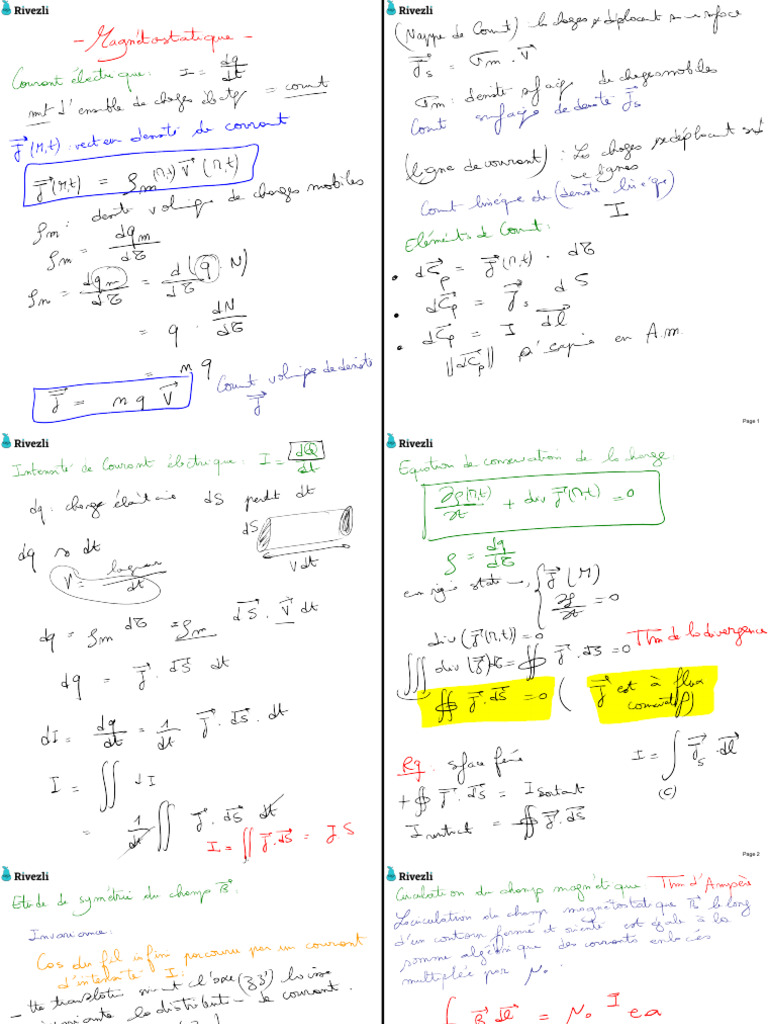 Rivezli
- Magnétostatique -
Courant électrique: I = dq/dt
mvt d'ensemble de charges électq = courant
j⃗(M,t) : vecteur densité de courant
j⃗(M,t) = ρm(M,t) v⃗(M,t)
ρm: densité volumique de charges mobiles
ρm = dqm/dτ
ρm = dqm/dτ = d(q·N)/dτ
= q · dN/dτ
= n q
j⃗ = n q v⃗
Courant volumique de densité j⃗
Rivezli
(Nappe de Courant) : les charges se déplacent sur une surface
j⃗s = σm · v⃗
σm : densité surfacique de charges mobiles
Courant surfacique de densité j⃗s
(ligne de courant) : Les charges se déplacent sur
des lignes
Courant linéique de (densité linéique)
I
Eléments de Courant:
• dC⃗p = j⃗(M,t) · dτ
• dC⃗p = j⃗s dS
• dC⃗p = I dl⃗
||dC⃗p|| s'exprime en A.m
Page 1
Rivezli
Intensité de Courant électrique : I = dQ/dt
dq : charge élémentaire dS pendant dt
dq → dt
dS
v dt
V = longueur/dt
dq = ρm dτ = ρm dS⃗ · v⃗ dt
dq = j⃗ · dS⃗ dt
dI = dq/dt = 1/dt j⃗ · dS⃗ · dt
I = ∬ dI
= 1/dt ∬ j⃗ · dS⃗ dt
I = ∬ j⃗ · dS⃗ = J S
Rivezli
Equation de conservation de la charge:
∂ρ(M,t)/∂t + div j⃗(M,t) = 0
ρ = dq/dτ
en régime stat → { j⃗(M)
∂ρ/∂t = 0
div (j⃗(M,t)) = 0
Thm de la divergence
∭ div(j⃗) dτ = ∯ j⃗ · dS⃗ = 0
∯ j⃗ · dS⃗ = 0 ( j⃗ est à flux conservatif)
Rq : surface fermée
I = ∫(C) j⃗s · dl⃗
+ ∯ j⃗ · dS⃗ = I sortant
I rentrant = - ∯ j⃗ · dS⃗
Page 2
Rivezli
Etude de symétrie du champ B⃗ :
Invariance:
Cas du fil infini parcouru par un courant
d'intensité I:
- tte translation suivant l'axe (zz') laisse
invariante la distribut° de courant.
Rivezli
Circulation du champ magnétique: Thm d'Ampère
La circulation du champ magnétostatique B⃗ le long
d'un contour fermé et orienté est égale à la
somme algébrique des courants enlacés
multipliée par μ0 :
∫ B⃗ dl⃗ = μ0 I